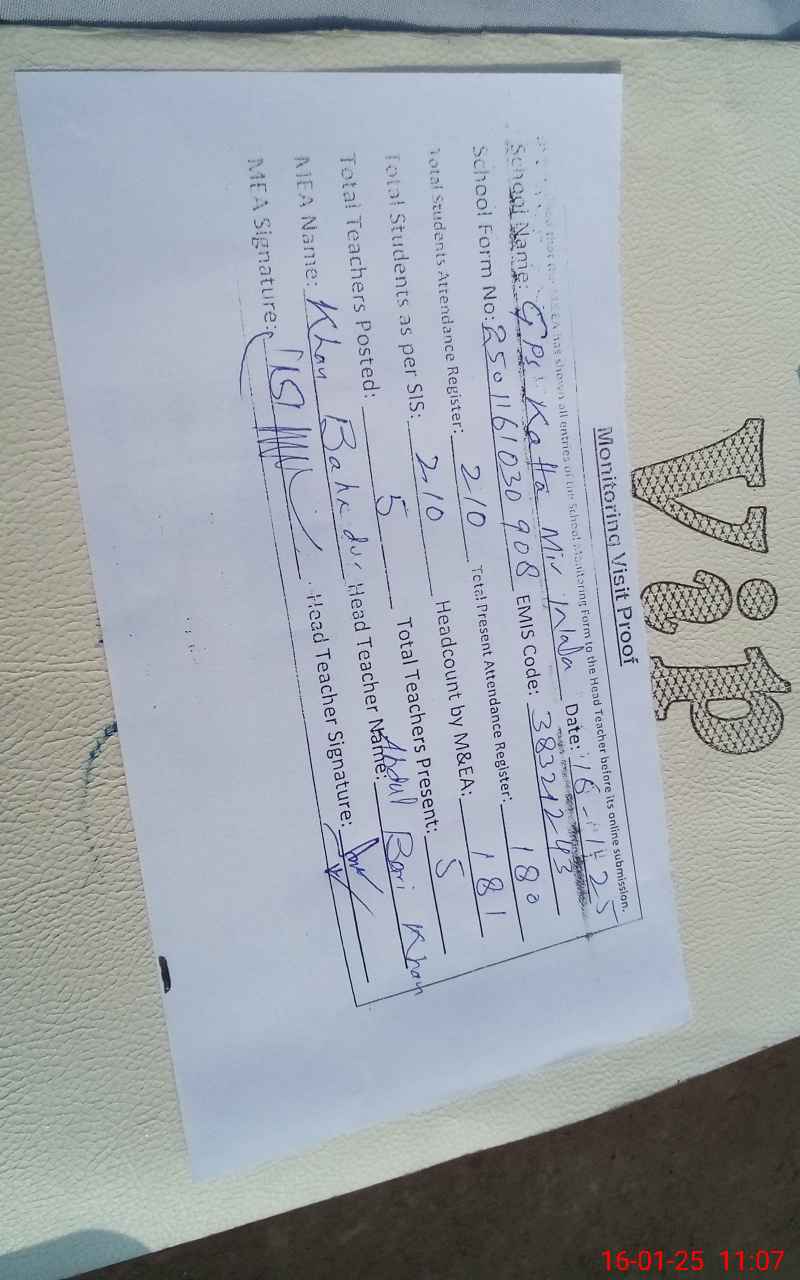 Vip
Monitoring Visit Proof
that the MEA has shown all entries of the School Monitoring Form to the Head Teacher before its online submission.
School Name: GPS Katta Mir Wala Date: 16-1-25
School Form No: 2501161030908 EMIS Code: 38321243
Total Students Attendance Register: 210 Total Present Attendance Register: 180
Total Students as per SIS: 210 Headcount by M&EA: 181
Total Teachers Posted: 5 Total Teachers Present: 5
MEA Name: Khan Bahadur Head Teacher Name: Abdul Bari Khan
MEA Signature: Head Teacher Signature:
16-01-25 11:07